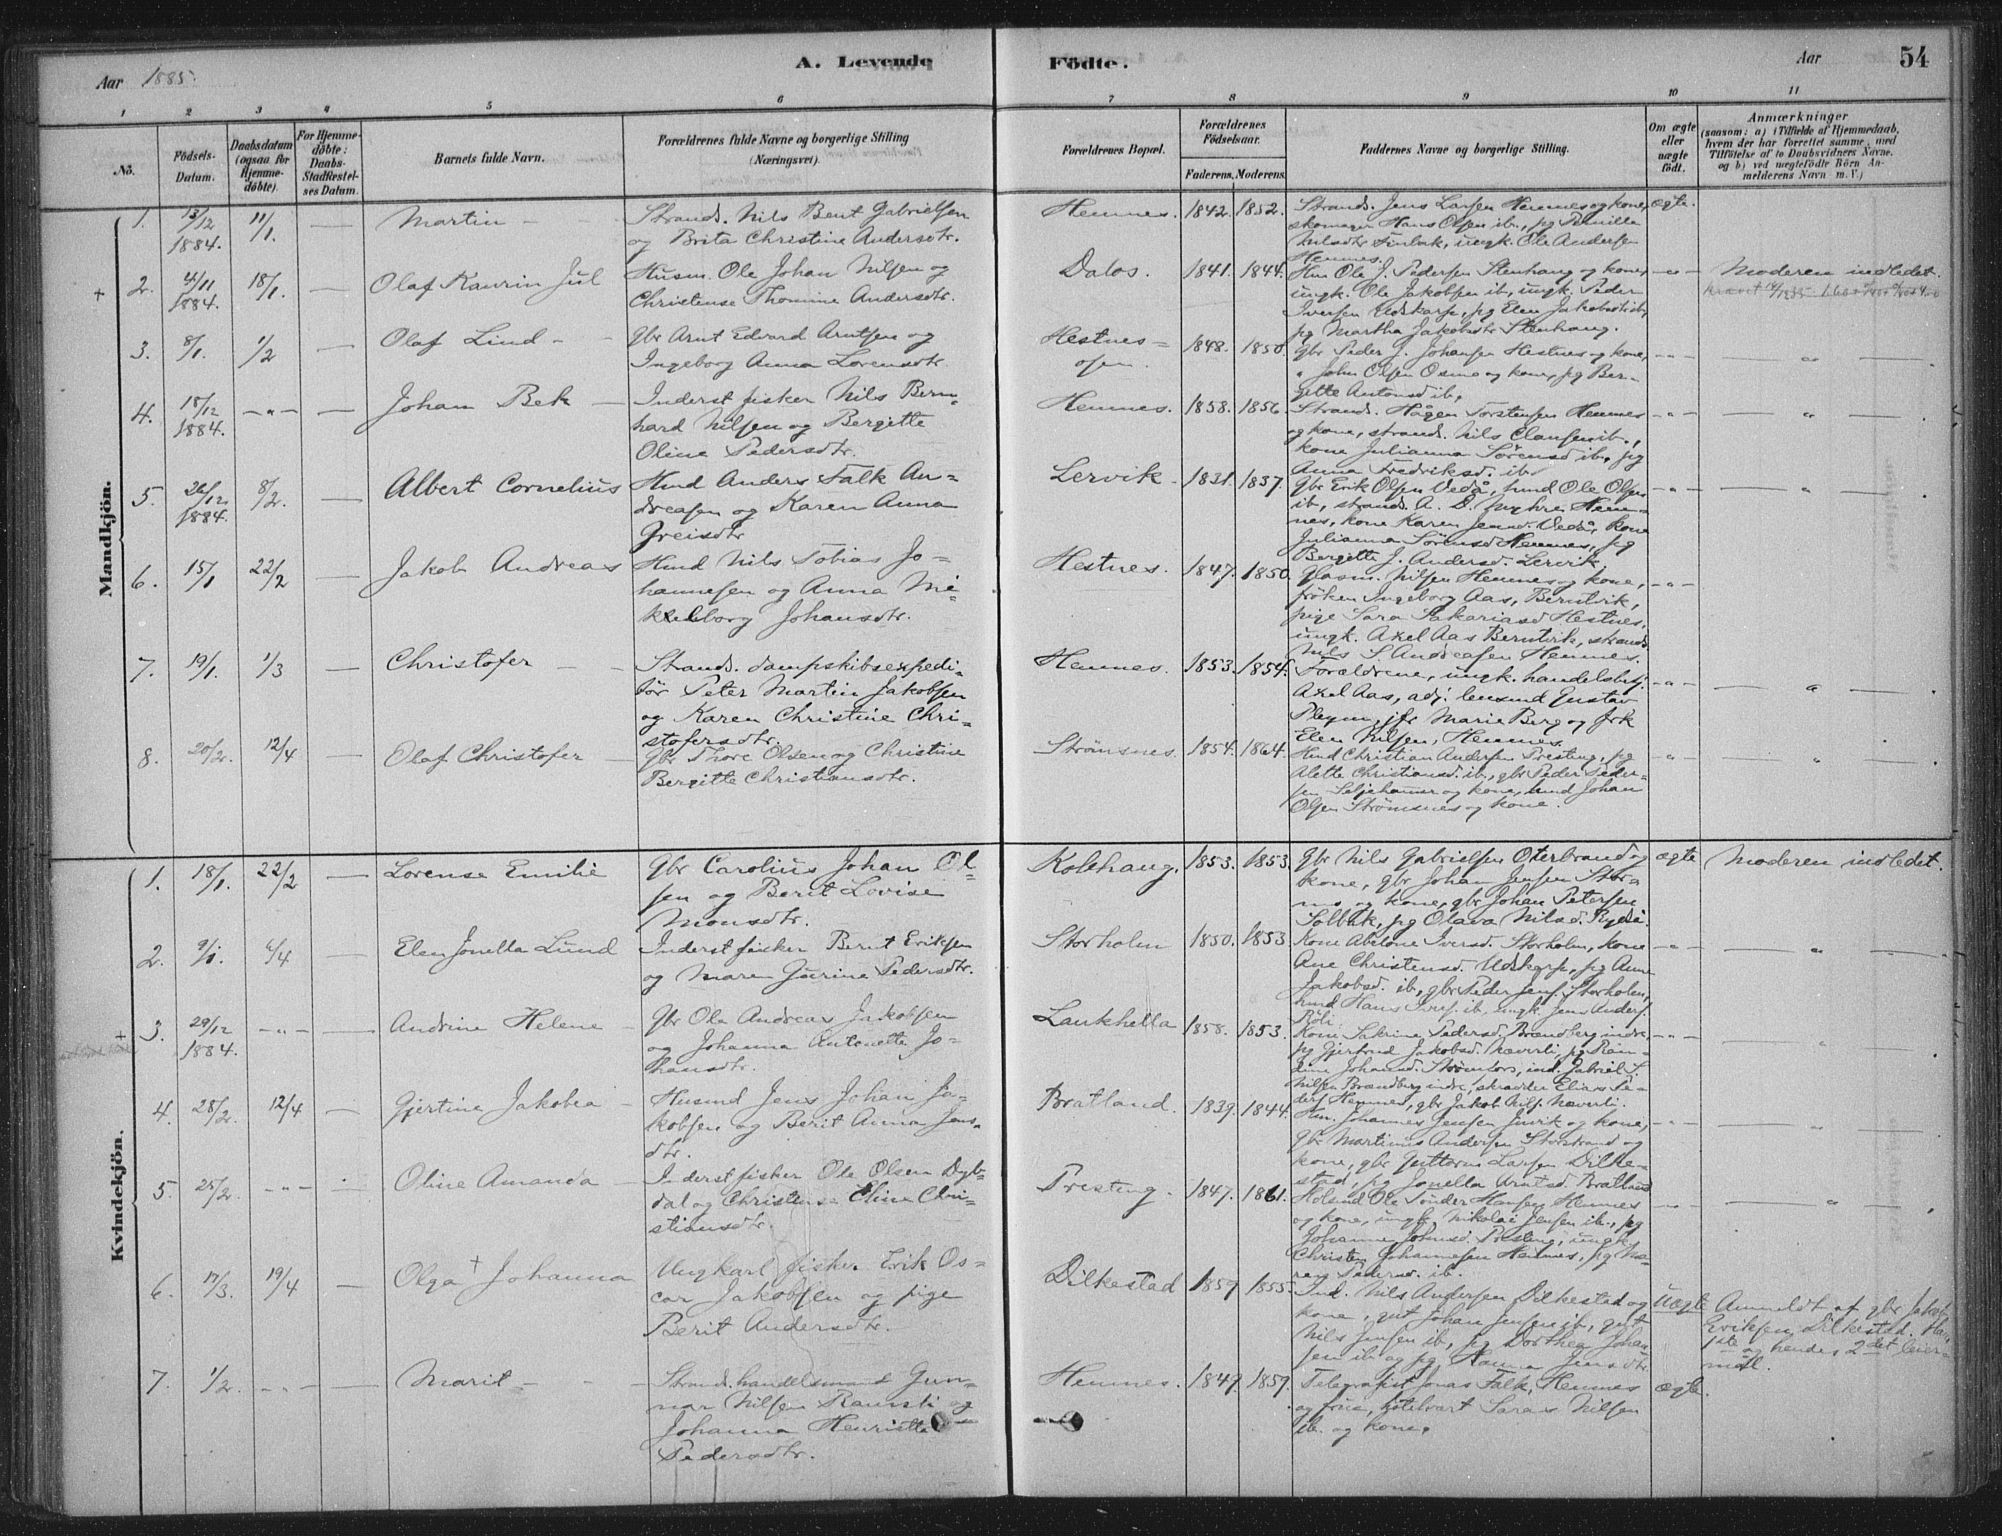 Aar 1885.
A. Levende
Födte.
Aar
54
1 2 3 4 5 6 7 8 9 10 11
No.
Födsels-Datum.
Daabsdatum (ogsaa for Hjemme-döbte).
For Hjemme-döbte: Daabs-Stadfæstel-ses Datum.
Barnets fulde Navn.
Forældrenes fulde Navne og borgerlige Stilling (Næringsvei).
Forældrenes Bopæl.
Forældrenes Födselsaar.
Faderens. Moderens.
Faddernes Navne og borgerlige Stilling.
Om ægte eller uægte födt.
Anmærkninger
(saasom: a) i Tilfælde af Hjemmedaab,
hvem der har forrettet samme, med
Tilföielse af to Daabsvidners Navne,
og b) ved uægtefödte Börn An-
melderens Navn m. V.)
Mandkjön.
1. 13/12 1884. 11/1. — Martin —
Strands. Nils Bent Gabrielsen
og Brita Christine Andersdtr.
Hemnes. 1842. 1852.
Strands. Jens Larsen Hemnes og kone,
skomager Hans Olsen ib., pg Pernilla
Nilsdtr Finbak, ungk. Ole Andersen
Hemnes.
ægte.
+ 2. 21/11 1884. 18/1. — Olaf Kaurin Jul
Husm. Ole Johan Nilsen og
Christense Thomine Andersdtr.
Dalos. 1841. 1844.
Hm Ole J. Pedersen Stenhaug og kone,
ungk. Ole Jakobsen ib, ungk. Peder
Iversen Udskarp, pg Elen Jakobsdtr ib,
pg Martha Jakobsdtr Stenhaug.
—"— Moderen indledet.
3. 8/1. 1/2 — Olaf Lind — —
Gbr Arnt Edvard Arntsen og
Ingeborg Anna Lorensdtr.
Hestnes=
osen. 1848. 1850.
Gbr Peder J. Johansen Hestnes og kone,
" John Olsen Osmo og kone, pg Ber-
gitte Antonsd ib,
—"— " —
4. 18/12 1884. —"— — Johan Bek —
Inderst fisker Nils Bern-
hard Nilsen og Bergitte
Oline Pedersdtr.
Hemnes. 1858. 1856.
Strands. Hågen Torstensen Hemnes
og kone, strands. Nils Clausen ib.,
kone Julianna Sörensd ib, pg
Anna Fredriksd. ib.
—"— — " —
5. 26/12 1884. 8/2. — Albert Cornelius
Hmd Anders Falk An-
dreasen og Karen Anna
Greisdtr
Lervik. 1831. 1837.
Gbr Erik Olsen Vedå, hmd Ole Olsen
ib, strands. A. D. Myhre Hem-
nes, kone Karen Jensd. Vedå, kone
Julianna Sörensd Hemnes, pg
Bergitte J. Andersd. Lervik.
—"— — " —
6. 15/1 22/2 — Jakob Andreas
Hmd Nils Tobias Jo-
hannesen og Anna Mi-
kkelborg Johansdtr.
Hestnes. 1847. 1850.
Glasm. Nilsen Hemnes og kone,
fröken Ingeborg Aas, Berntvik,
pige Sara Sakariasd Hestnes,
ungk. Axel Aas Berntvik, strands
Nils S. Andreasen Hemnes.
—"—
7. 19/1. 1/3 — Christofer — —
Strands. dampskibsexpedi-
tör Peter Martin Jakobsen
og Karen Christine Chri-
stofersdtr.
Hemnes. 1853. 1854.
Forældrene, ungk. handelsbetj.
Axel Aas, adj. lensmd Gustav
Pleym, jfr Marie Berg og frk
Elen Nilsen, Hemnes.
—"— — " —
8. 20/2. 12/4 — Olaf Christofer —
Gbr Thore Olsen og Christine
Bergitte Christiansdtr.
Strömsnes. 1854. 1864.
Hmd Christian Andersen Presteng, pg
Alette Christiansd. ib, gbr Peder Peder-
sen Seljehammer og kone, hmd Johan
Olsen Strömsnes og kone.
—"— — " —
Kvindekjön.
1. 18/1. 22/2 — Lorense Emilie
Gbr Carolius Johan Ol-
sen og Berit Lovise
Monsdtr.
Kolbhaug. 1853. 1853.
Gbr Nils Gabrielsen Oterbrand og
kone, gbr Johan Jensen Stor-
ns og kone, gbr Johan Petersen
Solbak, pg Olava Nilsd.
ægte Moderen indledet.
2. 9/1. 6/4 — Elen Jonetta Lund
Inderst fisker Bernt Eriksen
og Maren Gurine Pedersdtr.
Storholm 1850. 1853
Kone Abelone Iversd. Storholm, kone
Ane Christensd. Udskarp, pg Anne
Jakobsd. ib, gbr Peder Jens. Storholm,
hmd Hans Ivers. ib, ungk. Jens Anders.
—"— " —
+ 3. 29/12 1884. —"— — Andrine Helene —
Gbr Ole Andreas Jakobsen
og Johanna Antonette Jo-
hansdtr.
Laukhella 1858. 1853.
Kone Sakrine Pedersd. Brændberg indre,
pg Gjertrud Jakobsd. Næverli, pg Ran-
dine Johansd. Strömfors, ind. Gabriel S.
Nilsen Brændberg indre, skrædder Elias Pe-
ders. Hemnes, gbr Jakob Nils. Næverli.
—"— " —
4. 28/2. 12/4 — Gjertine Jakobea —
Husmd Jens Johan Ja-
kobsen og Berit Anna Jens-
dtr.
Bratland. 1839. 1844.
Hm. Johannes Jensen Juvik og kone,
gbr Martinus Andersen Storstrand og
kone, gbr Guttorm Larsen Dilke-
stad, pg Jonetta Arntsd. Bratland
—"— — " —
5. 25/2. —"— — Oline Amanda —
Inderst fisker Ole Olsen Dyb-
dal og Christense Elina Chri-
stiansdtr.
Presteng. 1847. 1861.
Holsmd Ole Tönder Hansen Hemnes
og kone, ungk. Nikolai Jensen ib., pg
Johanne Johnsd. Presteng, ungk.
Christen Johannesen Hemnes, pg Ma-
ren Pedersd. ib.
—"— — " —
6. 17/3. 19/4 — Olga + Johanna
Ungkarl fisker Erik Os-
car Jakobsen og pige
Berit Andersdtr.
Dilkestad 1859 1855.
Ind. Nils Andersen Dilkestad og
kone, gut Johan Jensen ib, gut
Nils Jensen ib, pg Dorthea Johan-
sen ib og pg Hanna Jensdtr
Uægte Anmeldt af gbr Jakob
Eriksen Dilkestad. Han
1ste og hendes 2det leier-
mål.
7. 1/2. —"— — Marit — —
Strands. handelsmand Gun-
nar Nilsen Ramsli og
Johanna Henriette
Pedersdtr.
Hemnes. 1849. 1859.
Telegrafist Jonas Falk, Hemnes
og frue, hotelvært Saras Nilsen
ib. og kone.
ægte.